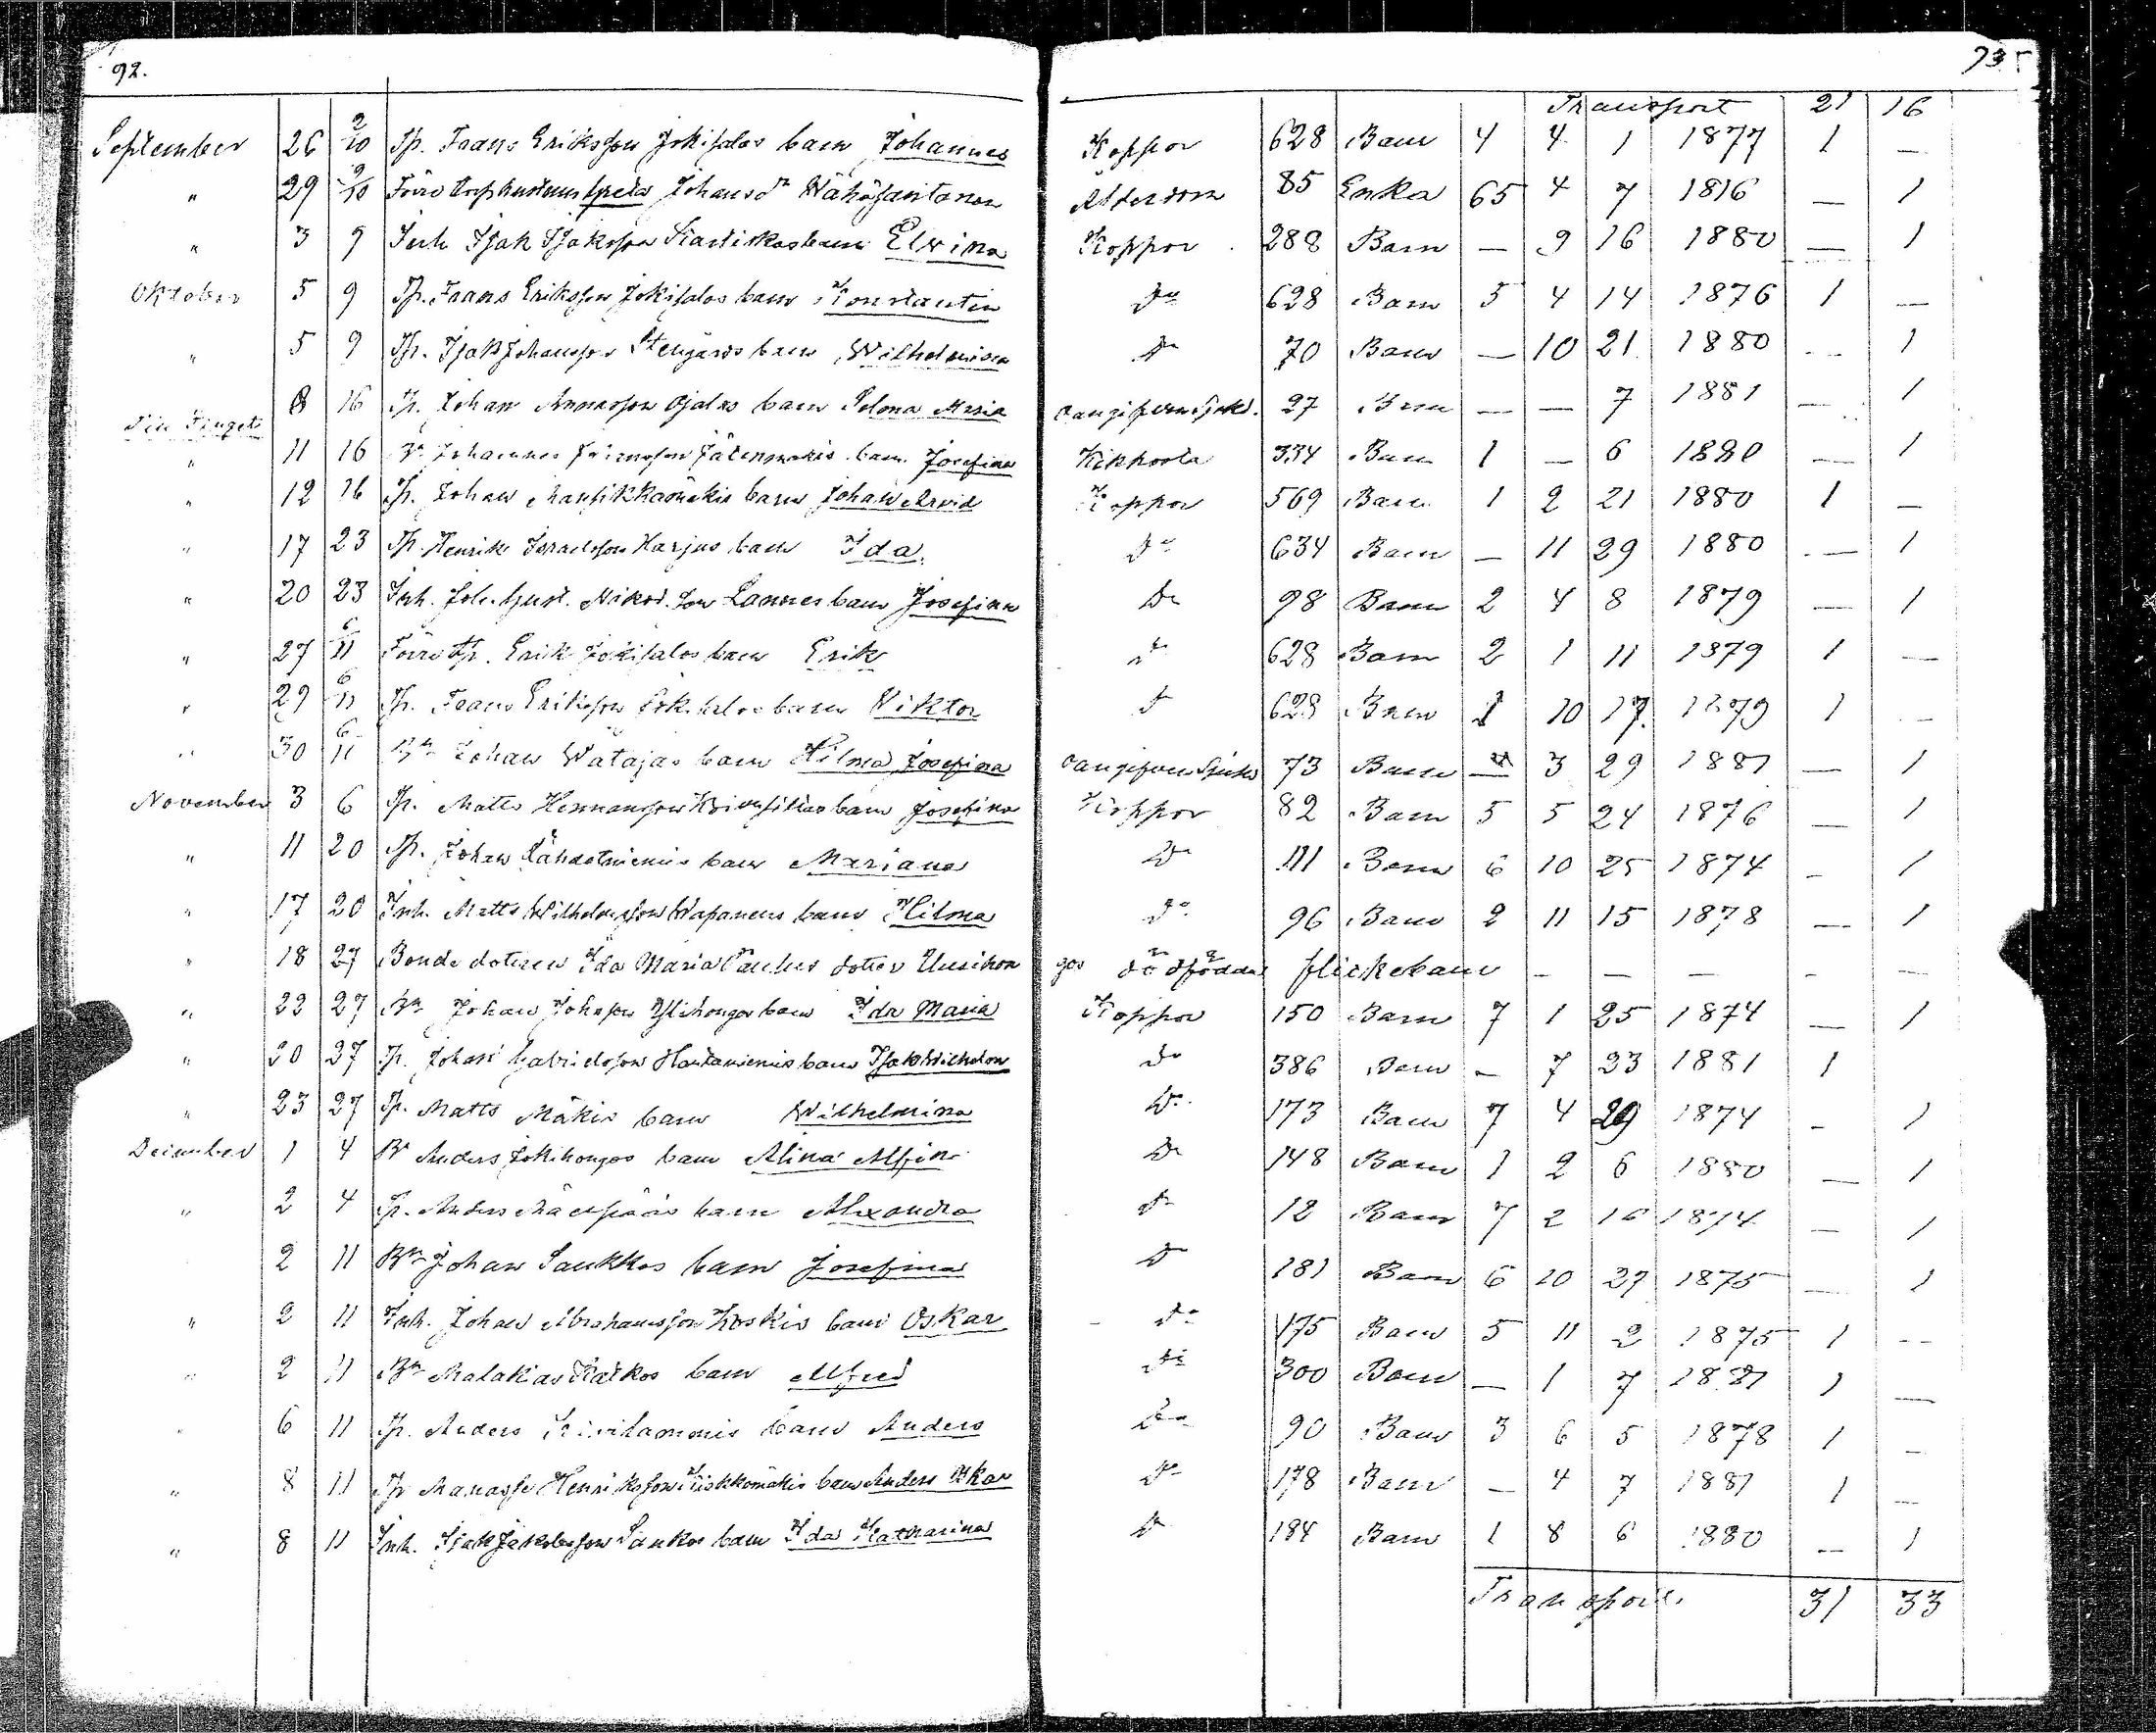 92. 93
Transport 21 16
September 26 2/10 Tp. Frans Eriksson Jokisalos barn Johannes Koppor 628 Barn 4 4 1 1877 1 —
" 29 9/10 Förre Johansdr Wähäsantanen Ålderdom 85 Enka 65 4 7 1816 — 1
" 3 9 Inh Isak Isaksson barn Elvina Koppor 288 Barn — 9 16 1880 — 1
Oktober 5 9 Tp. Frans Eriksson Jokisalos barn Konstantin Do 628 Barn 5 4 14 1876 1 —
" 5 9 Tp. Isak Johansson Stengårds barn Wilhelmina Do 70 Barn — 10 21 1880 — 1
8 16 Tp. Johan Ojalas barn Selma Maria oangifven sjukd. 27 Barn — — 7 1881 — 1
" 11 16 Bn Johannes barn Josefina Kikhosta 334 Barn 1 — 6 1880 — 1
" 12 16 Tp. Johan Mansikkamäkis barn Johan Arvid Koppor 569 Barn 1 2 21 1880 1 —
" 17 23 Tp. Henrik Israelsson Harjus barn Ida Do 634 Barn — 11 29 1880 — 1
" 20 23 Inh. Joh. Gust. Nikod. son Lannes barn Josefina Do 98 Barn 2 4 8 1879 — 1
" 27 6/11 Förre Tp. Erik Jokisalos barn Erik Do 628 Barn 2 1 11 1879 1 —
" 29 6/11 Tp. Frans Eriksson Jokisalos barn Viktor Do 628 Barn 1 10 17 1879 1 —
" 30 6/11 Bn Johan Watajas barn Hilma Josefina oangifven Sjukd 73 Barn — 3 29 1881 — 1
November 3 6 Tp. Matts Hermansson barn Josefina Koppor 82 Barn 5 5 24 1876 — 1
" 11 20 Tp. Johan Lähdetniemis barn Mariana Do 111 Barn 6 10 25 1874 — 1
" 17 20 Inh. Matts Wilhelmsson Wapanens barn Hilma Do 96 Barn 2 11 15 1878 — 1
" 18 27 Bonde dotren Ida Maria dotter Uusihon dödfödda flickebarn — — — — —
" 22 27 Bn Johan Johnsson Ylihongos barn Ida Maria Koppor 150 Barn 7 1 25 1874 — 1
" 20 27 Tp. Johan Gabrielsson Hautaniemis barn Isak Wilhelm Do 386 Barn — 7 23 1881 1
" 23 27 Tp. Matts Mäkis barn Wilhelmina Do 173 Barn 7 4 29 1874 — 1
December 1 4 Bn Anders Jokihongos barn Alina Do 148 Barn 1 2 6 1880 — 1
" 2 4 Tp. Anders Mäenpääs barn Alexandra Do 12 Barn 7 2 16 1874 — 1
2 11 Bn Johan Saukkos barn Josefina Do 181 Barn 6 10 27 1875 — 1
" 2 11 Inh. Johan Abrahamsson Koskis barn Oskar Do 175 Barn 5 11 2 1875 1 —
" 2 11 Bn Malakias Ratkos barn Alfred Do 300 Barn — 1 7 1881 1 —
" 6 11 Tp. Anders barn Anders Do 90 Barn 3 6 5 1878 1 —
" 8 11 Tp Manasse Henriksson barn Anders Oskar Do 178 Barn — 4 7 1881 1 —
" 8 11 Inh. Isak Jakobsson Saukos barn Ida Katharina Do 184 Barn 1 8 6 1880 — 1
Transport. 31 33